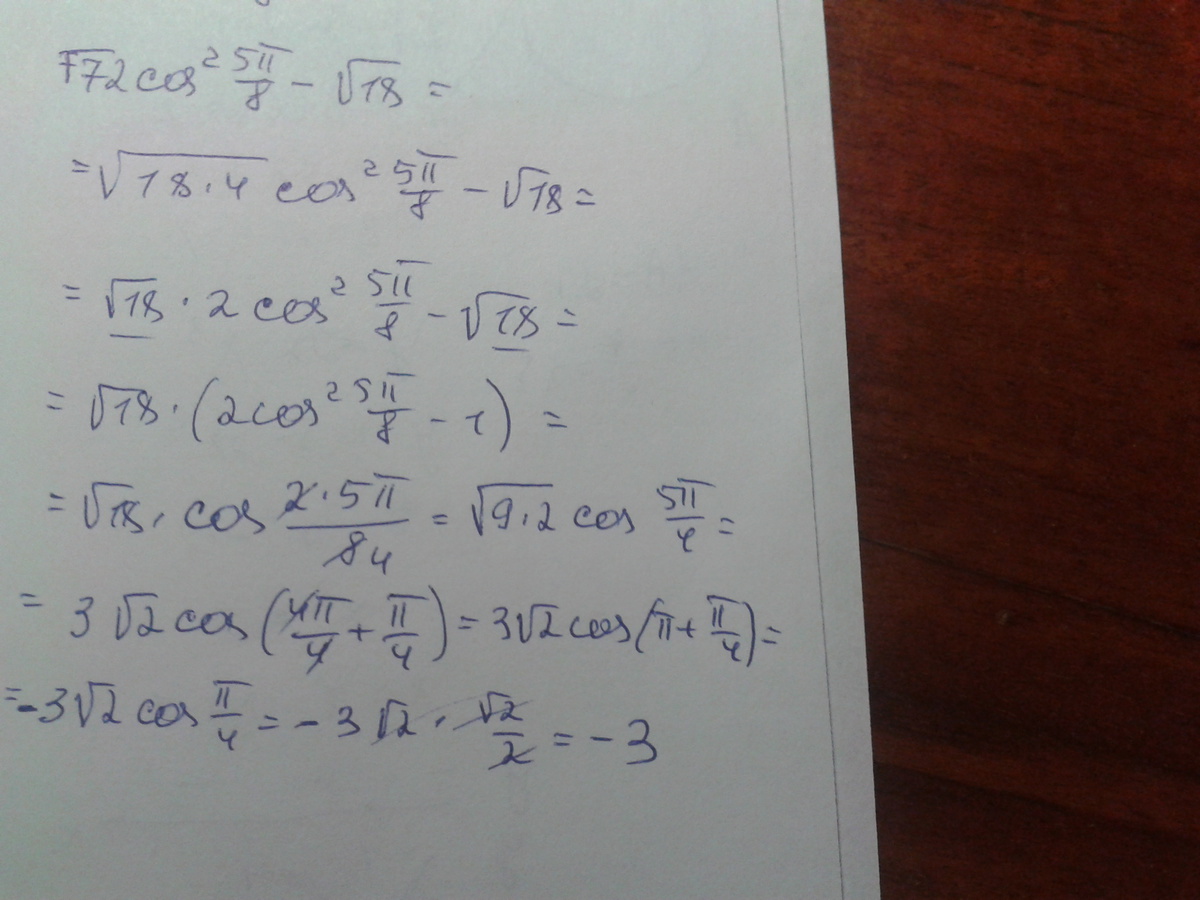 √72 cos² 5π/8 − √18 =
= √18·4 cos² 5π/8 − √18 =
= √18 · 2 cos² 5π/8 − √18 =
= √18 · (2cos² 5π/8 − 1) =
= √18 · cos 2·5π/84 = √9·2 cos 5π/4 =
= 3√2 cos (4π/4 + π/4) = 3√2 cos (π + π/4) =
= -3√2 cos π/4 = − 3√2 · √2/2 = −3